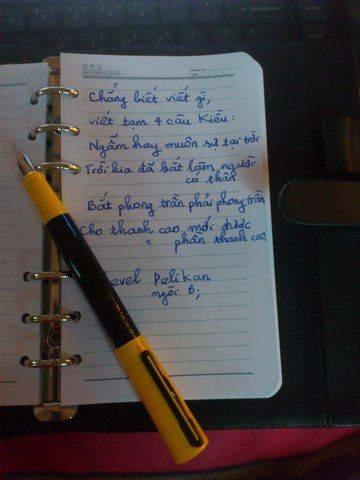 Backspace
Chẳng biết viết gì,
viết tạm 4 câu Kiều:
Ngẫm hay muôn sự tại trời
Trời kia đã bắt làm người
có thân
Bắt phong trần phải phong trần
Cho thanh cao mới được
phần thanh cao.
Level Pelikan
ngòi B;